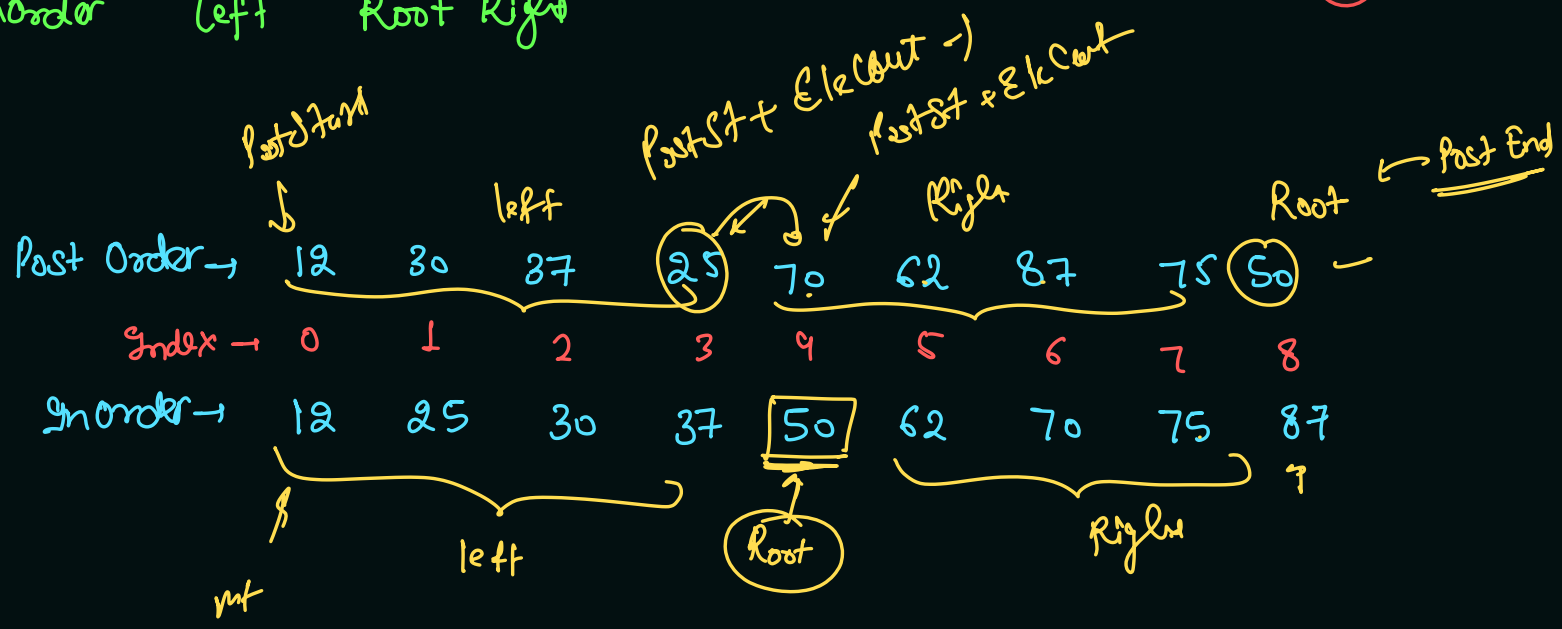 order left Root Right
PostStart
PostSt + EleCout -1
PostSt + EleCout
left
Right
Root
Post End
Post Order → 12 30 37 25 70 62 87 75 50
Index → 0 1 2 3 4 5 6 7 8
Inorder → 12 25 30 37 50 62 70 75 87
left
Root
Right